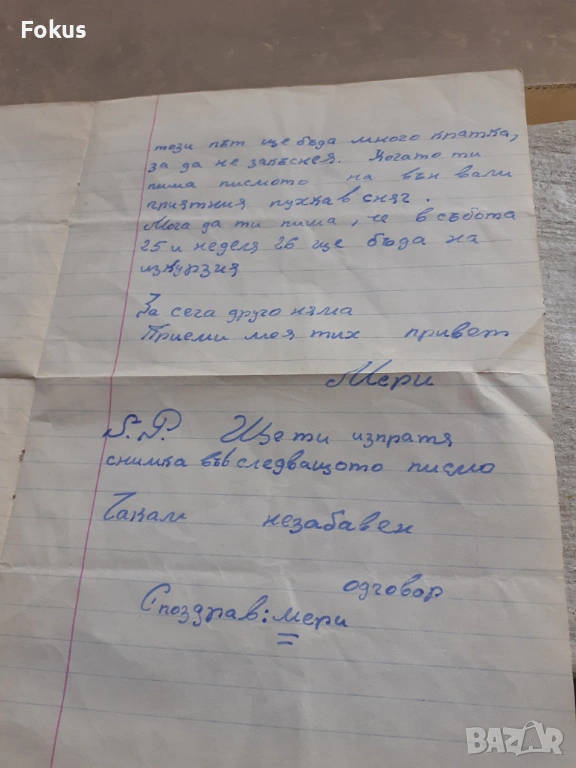 Fokus
този път ще бъда много кратка,
за да не закъснея. Когато ти
пиша писмото на вън вали
приятния пухкав сняг.
Мога да ти пиша, че в събота
25 и неделя 26 ще бъда на
излурзия
За сега друго няма
Приеми моя тих привет
Мери
S.P. Ще ти изпратя
снимка във следващото писмо
Чакам незабавен
одговор
С поздрав: Мери
BAZAR